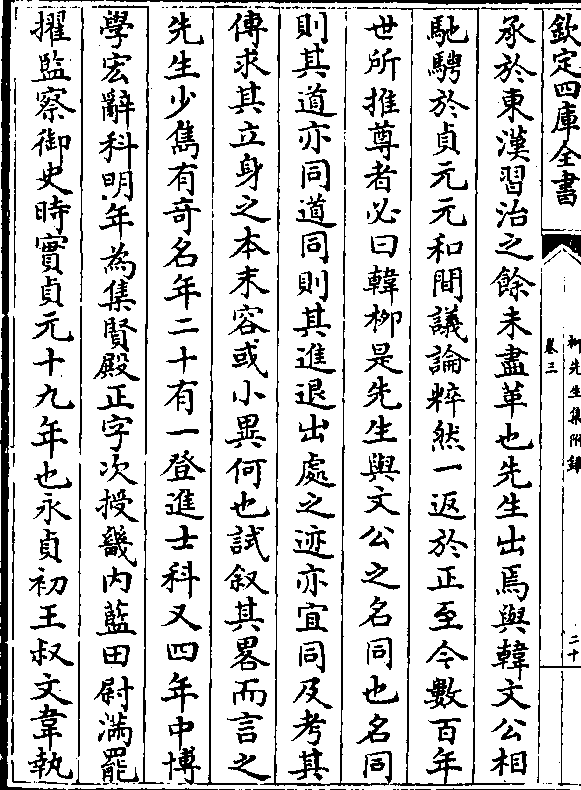 欽定四庫全書
柳先生集附錄
卷三
二十
承於東漢習治之餘未盡革也先生出焉與韓文公相
馳騁於貞元元和間議論粹然一返於正至今數百年
世所推尊者必曰韓柳是先生與文公之名同也名同
則其道亦同道同則其進退出處之迹亦宜同及考其
傳求其立身之本末容或小異何也試叙其畧而言之
先生少雋有奇名年二十有一登進士科又四年中博
學宏辭科明年為集賢殿正字次授畿内藍田尉滿罷
擢監察御史時實貞元十九年也永貞初王叔文韋執